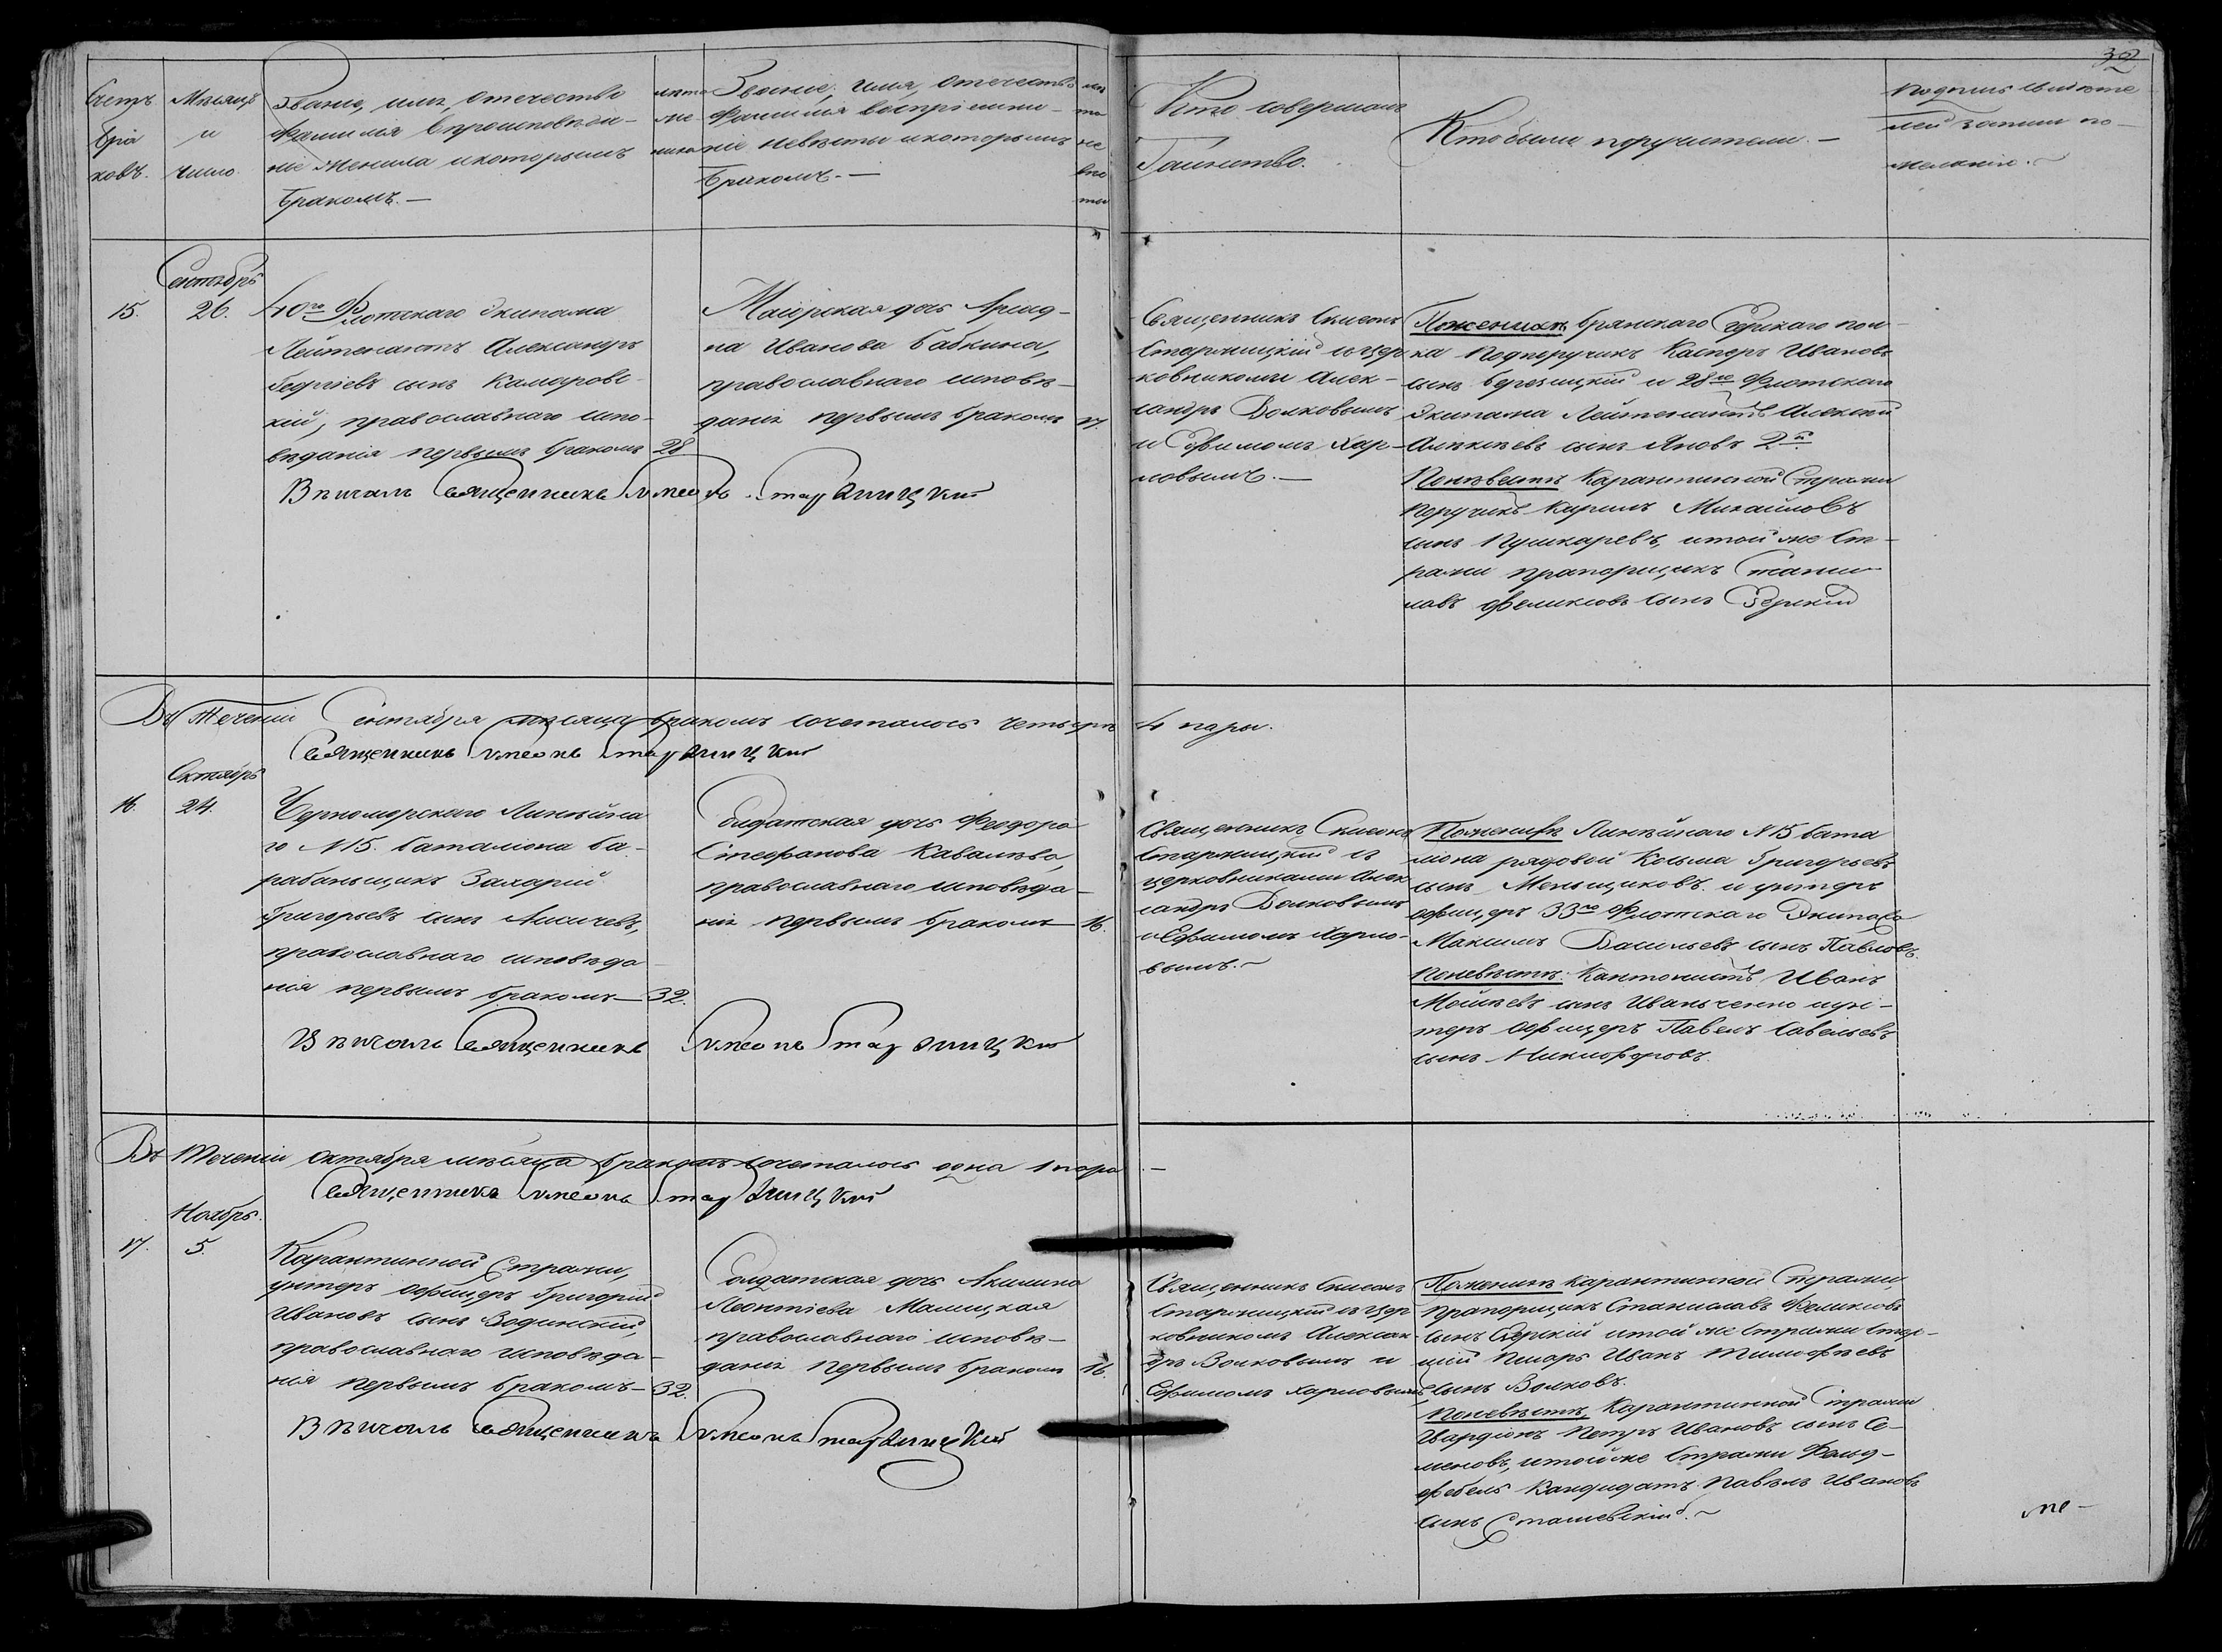 32
Счетъ браковъ.
Мѣсяцъ и число.
Званіе, имя, отечество
фамилія вѣроисповѣда-
ніе жениха и которымъ
бракомъ. —
лѣта же-
ниха
Званіе, имя, отечество
фамилія вѣроисповѣда-
ніе невѣсты и которымъ
бракомъ. —
лѣта не
вѣс
ты
Кто совершалъ
Таинство.
Кто были поручители. —
Подпись свидѣте
лей записи по
желанію.
Сентябрь
15.
26.
40го Флотскаго Экипажа
Лейтенантъ Александръ
Георгіевъ сынъ Камаровс-
кій, православнаго испо-
вѣданія первымъ бракомъ
28
Маіорская дочь Аріад-
на Иванова Бабкина,
православнаго исповѣ-
данія первымъ бракомъ
17.
Священникъ Симеонъ
Старжицкій съ цер
ковниками Алек-
сандръ Волковымъ
и Ефимомъ Хар-
ловымъ. —
По женихѣ Брянскаго Егерскаго пол-
ка Подпоручикъ Касперъ Ивановъ
сынъ Березицкій и 28го Флотскаго
Экипажа Лейтенантъ Алексѣй
Алексѣевъ сынъ Яновъ 2й.
По невѣстѣ Карантинной Стражи
Поручикъ Карилъ Михайловъ
сынъ Пушкаревъ, и той же Ст-
ражи прапорщикъ Станис
лавъ Феликсовъ сынъ Серкій
Вѣнчалъ Священникъ Симеонъ Старжицкій
Въ теченіи Сентября мѣсяца бракомъ сочеталось четыре 4 пары.
Священникъ Симеонъ Старжицкій
Октябрь
16.
24.
Черноморскаго Линѣйна
го N 15. баталіона ба-
рабаньщикъ Захарій
Григорьевъ сынъ Лисичевъ,
православнаго исповѣда
нія первымъ бракомъ —
32.
Солдатская дочь Феодора
Стефанова Кавалѣва,
православнаго исповѣда-
нія первымъ бракомъ —
16.
Священникъ Симеонъ
Старжицкій съ
церковниками Алек
сандръ Волковымъ
и Ефимомъ Харло-
вымъ. ~
По женихѣ Линѣйнаго N 15 бата
ліона рядовой Косьма Григорьевъ
сынъ Меньщиковъ и унтеръ
офицеръ 33го Флотскаго Экипажа
Максимъ Васильевъ сынъ Павловъ.
По невѣстѣ Кантонистъ Иванъ
Моисѣевъ сынъ Иваньченко и ун-
теръ офицеръ Павелъ Савельевъ
сынъ Никифоровъ.
Вѣнчалъ Священникъ Симеонъ Старжицкій
Въ теченіи Октября мѣсяца бракомъ сочеталось одна 1 пара —
Священникъ Симеонъ Старжицкій
Ноябрь.
17.
5.
Карантинной Стражи,
унтеръ офицеръ Григорій
Ивановъ сынъ Водинскій,
православнаго исповѣда-
нія первымъ бракомъ —
32.
Солдатская дочь Акилина
Леонтіева Малицкая
православнаго исповѣ-
данія первымъ бракомъ
16.
Священникъ Симеонъ
Старжицкій съ цер
ковникомъ Алексан
дръ Волковымъ и
Ефимомъ Харловымъ
По женихѣ Карантинной Стражи,
прапорщикъ Станиславъ Феликсовъ
сынъ Серкій и той же Стражи стар-
шій писарь Иванъ Тимофѣевъ
сынъ Волковъ.
По невѣстѣ, Карантинной Стражи
Гвардіонъ Петръ Ивановъ сынъ Се-
меновъ, и той же Стражи Фельд-
фебель Кандидатъ Павелъ Ивановъ
сынъ Сташевскій. ~
Вѣнчалъ Священникъ Симеонъ Старжицкій